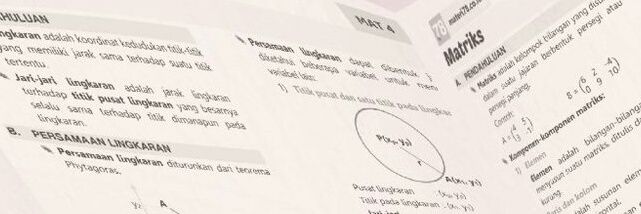 AHULUAN
ngkaran adalah koordinat kedudukan titik-titik
yang memiliki jarak sama terhadap suatu titik
tertentu
Jari-jari lingkaran adalah jarak lingkaran
terhadap titik pusat lingkaran yang besarnya
selalu sama terhadap titik dimanapun pada
lingkaran.
B. PERSAMAAN LINGKARAN
Persamaan lingkaran diturunkan dari teorema
Phytagoras.
A
MAT 4
Persamaan lingkaran dapat dibentuk
diketahui beberapa variabel untuk
variabel lain:
1) Titik pusat dan satu titik pada lingkar
P(x₀, y₀)
r
A(x₁, y₁)
Pusat lingkaran
Titik pada lingkaran
78
materi78.co
Matriks
A. PENDAHULUAN
Matriks adalah kelompok bilangan yang disu
dalam suatu jajaran berbentuk persegi atau
persegi panjang.
Contoh:
Komponen-komponen matriks:
1) Elemen
Elemen adalah bilangan-bilangan
menyusun suatu matriks, ditulis
kurung.
dan kolom
susunan elem